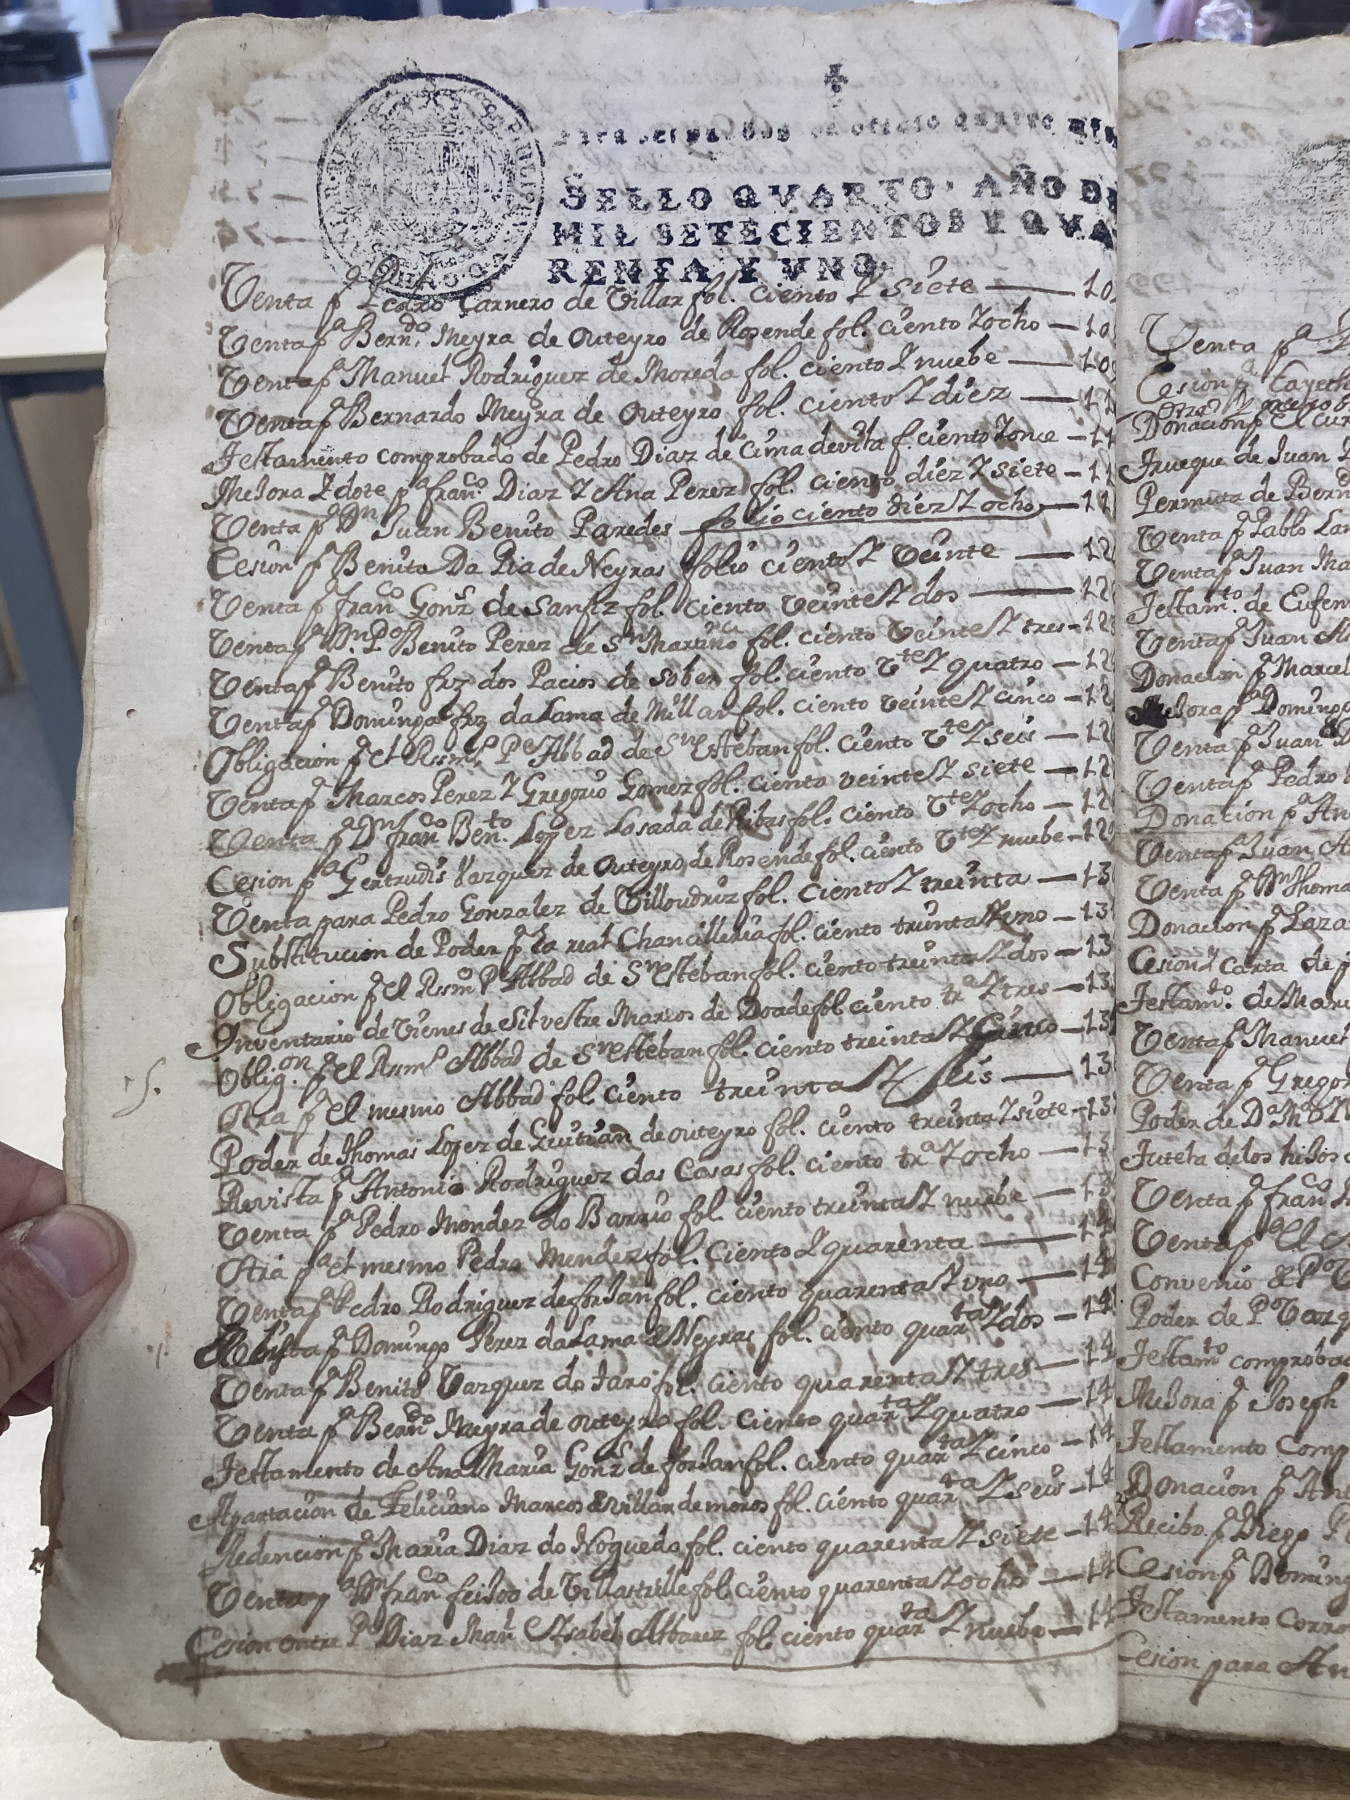 Para despachos de oficio quatro mrs
SELLO QVARTO, AÑO DE
MIL SETECIENTOS Y QVA
RENTA Y VNO.
Venta pª Pedro Carnero de Villar fol. ciento Y siete — 10
Venta pª Berndo Meyra de Outeyro de Rosende fol. ciento Y ocho — 10
Venta pª Manuel Rodriguez de Moreda fol. ciento Y nuebe — 109
Venta pª Bernardo Meyra de Outeyro fol. ciento Y diez — 11
Testamento comprobado de Pedro Diaz de Cima de vila f. ciento Y once — 11
Mejora Y dote pª franco Diaz Y Ana Perez fol. ciento diez Y siete — 11
Venta pª Dn Juan Benito Paredes folio ciento diez Y ocho — 11
Cesion pª Benita Da Pia de Neyras folio ciento Y veinte — 12
Venta pª franco Gonz de Sanfiz fol. ciento veinte Y dos — 12
Venta pª Dn Po Benito Perez de Sn Martiño fol. ciento veinte Y tres — 12
Venta pª Benito frz dos Pacios de Sober fol. ciento vte Y quatro — 12
Venta pª Dominga frz da Lama de Millan fol. ciento veinte Y cinco — 12
Obligacion pª el Rmo Pe Abbad de Sn Esteban fol. ciento vte Y seis — 12
Venta pª Marcos Perez Y Gregorio Gomez fol. ciento veinte Y siete — 12
Venta pª Dn franco Bento Lopez Losada de Ribas fol. ciento vte Y ocho — 12
Cesion pª Gertrudis Vazquez de Outeyro de Rosende fol. ciento vte Y nuebe — 129
Venta para Pedro Gonzalez de Villoudriz fol. ciento Y treinta — 13
Substitucion de Poder pª la real Chancilleria fol. ciento treinta Y uno — 13
Obligacion pª el Rmo P Abbad de Sn Esteban fol. ciento treinta Y dos — 13
Inventario de vienes de Silvestre Marcos de Doade fol. ciento trª Y tres — 13
Obligon pª el Rmo Abbad de Sn Esteban fol. ciento treinta Y Cinco — 13
Otra pª el mesmo Abbad fol. ciento treinta Y seis — 13
Poder de Thomas Lopez de Guitian de outeyro fol. ciento treinta Y siete — 13
Revista pª Antonio Rodriguez das Casas fol. ciento trª Y ocho — 13
Venta pª Pedro Mendez do Barrio fol. ciento treinta Y nuebe — 13
Otra pª el mesmo Pedro Mendez fol. ciento Y quarenta — 14
Venta pª Pedro Rodriguez de forjan fol. ciento quarenta Y uno — 14
Revista pª Domingo Perez da Lama de Neyras fol. ciento quarta Y dos — 14
Venta pª Benito Vazquez do Jaro fol. ciento quarenta Y tres — 14
Venta pª Berndo Meyra de outeyro fol. ciento quarta Y quatro — 14
Testamento de Ana Maria Gonz de forjan fol. ciento quarta Y cinco — 14
Apartacion de Feliciano Marcos de villar de moros fol. ciento quarta Y seis — 14
Redencion pª Maria Diaz do Noguedo fol. ciento quarenta Y siete — 14
Venta pª Dn franco feijoo de Villastrille fol. ciento quarenta Y ocho — 14
Cesion entre Po Diaz Y Isabel Albarez fol. ciento quarta Y nuebe — 14
Venta pª
Cesion pª Cayet
Donacion pª el cur
Trueque de Juan
Permuta de Bernd
Venta pª Pablo Lan
Venta pª Juan Ma
Testamto. de Eufem
Venta pª Juan
Donacion pª Marcel
Mejora pª Domingo
Venta pª Juan
Venta pª Pedro
Donacion pª An
Venta pª Juan
Venta pª Dn Thoma
Donacion pª Laza
Cesion Y Carta de p
Testamto. de Mar
Venta pª Manuel
Venta pª Grego
Poder de Dª Mª
Tutela de los hijos
Venta pª franco
Venta pª el
Convenio de Po
Poder de Po Vazq
Testamto comproba
Mejora pª Joseph
Testamento Comp
Donacion pª An
Recibo pª Diego P
Cesion pª Doming
Testamento Corro
Cesion para An